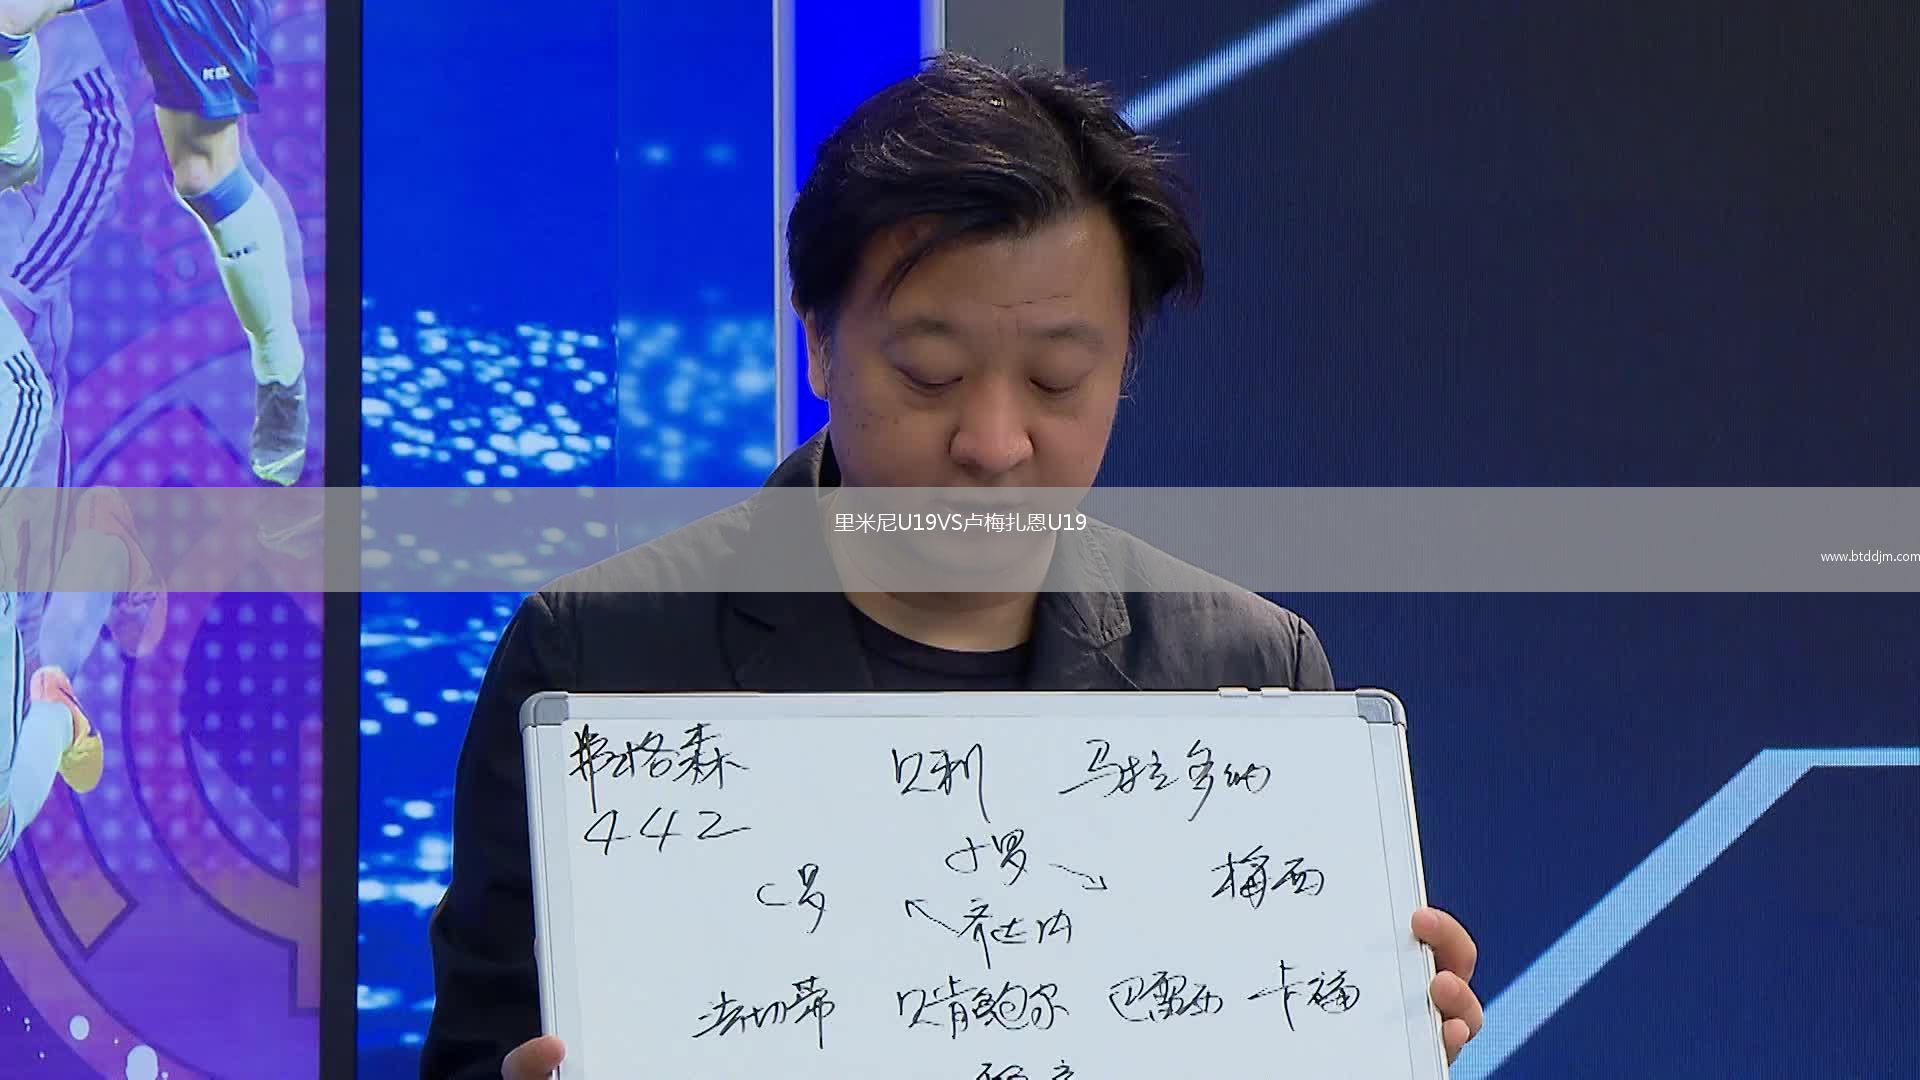 里米尼U19VS卢梅扎恩U19
www.btddjm.com
弗格森 贝利 马拉多纳
442
小罗
C罗 梅西
齐达内
法切蒂 贝肯鲍尔 巴雷西 卡福